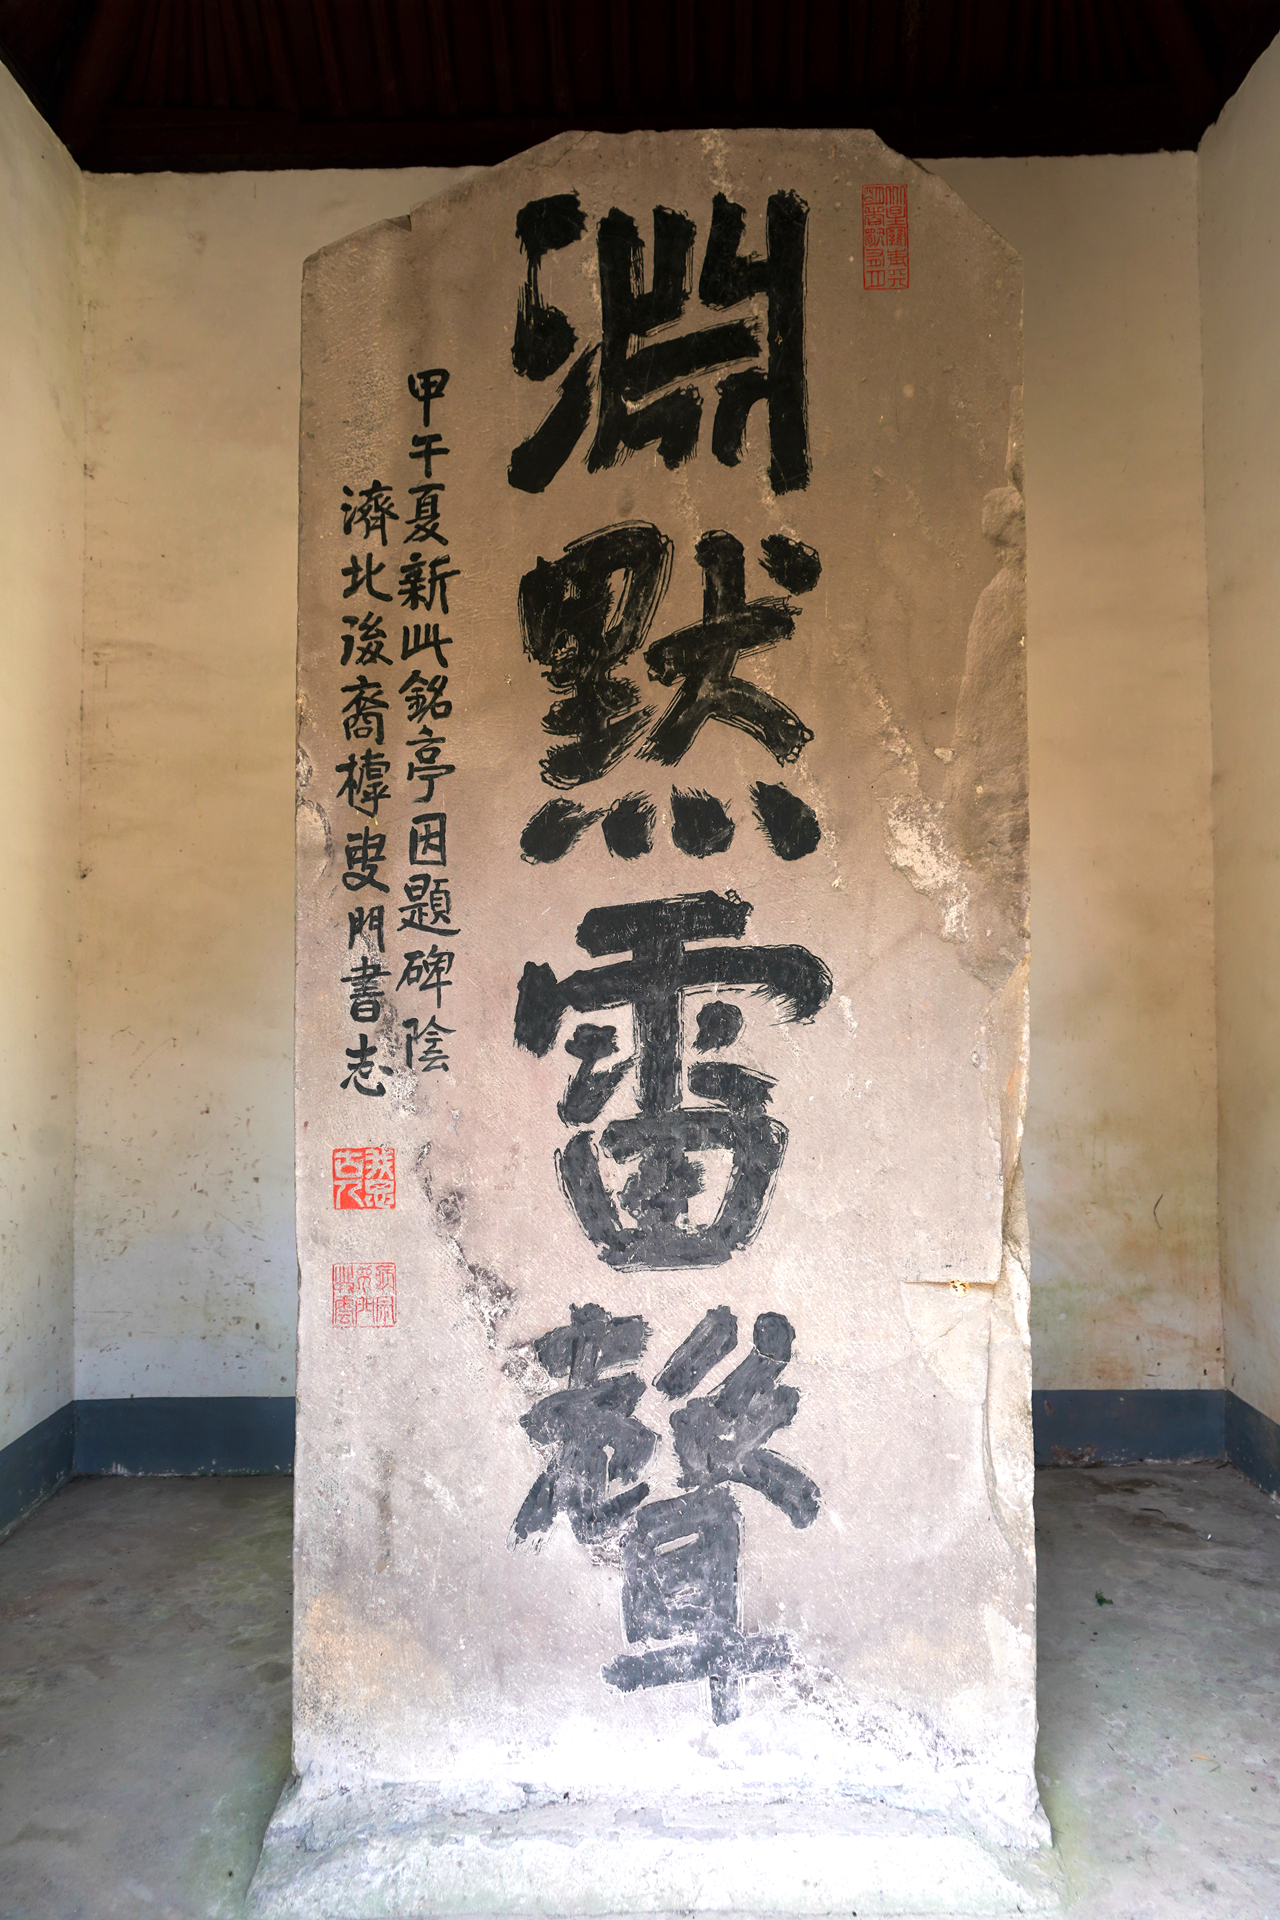 淵默雷聲
甲午夏新此銘亭因題碑陰
濟北後裔樗叟門書志